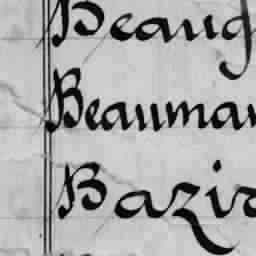 Beaug
Beauman
Bazir